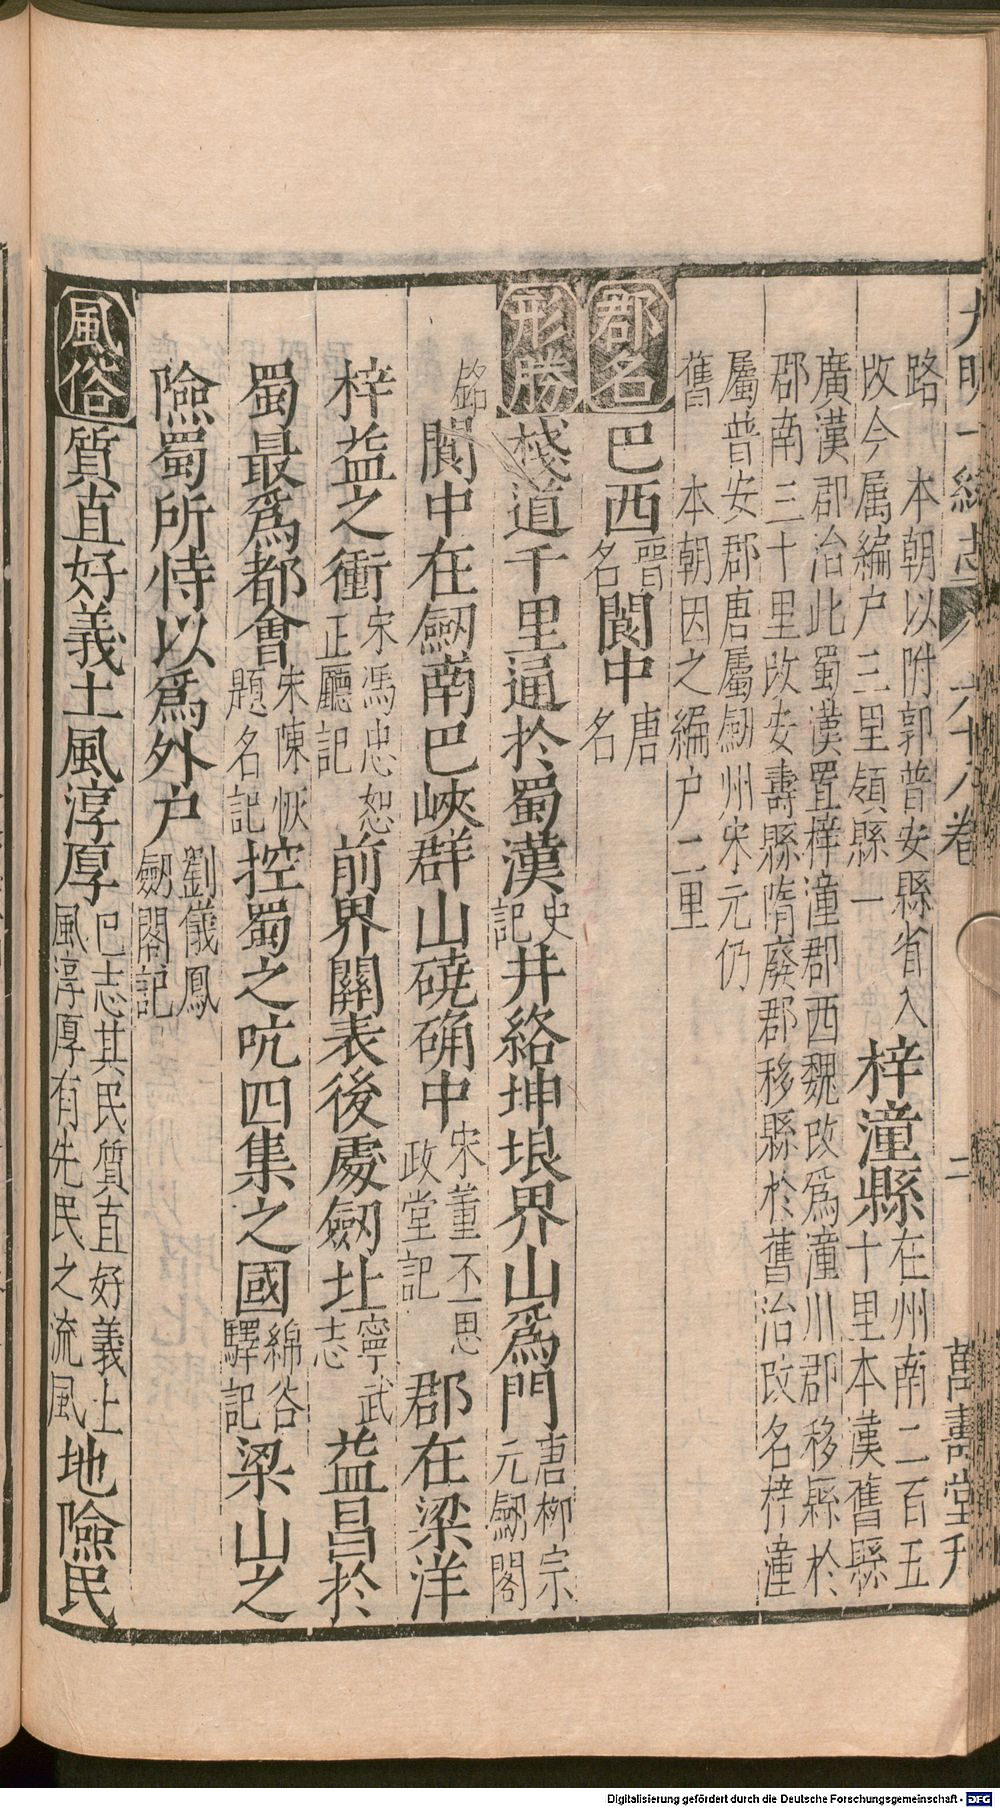 大明一統志 六十八卷 二 萬壽堂刋
路 本朝以附郭普安縣省入
改今属編户三里領縣一
梓潼縣
在州南二百五
十里本漢舊縣
廣漢郡治此蜀漢置梓潼郡西魏改爲潼川郡移縣於
郡南三十里改安壽縣隋廢郡移縣於舊治改名梓潼
屬普安郡唐屬劒州宋元仍
舊 本朝因之編户二里
郡名 巴西 晉名 閬中 唐名
形勝 棧道千里通於蜀漢 史記 井絡坤垠界山爲門 唐柳宗元劒閣
銘 閬中在劒南巴峽群山磽确中 宋董不思政堂記 郡在梁洋
梓益之衝 宋馮忠恕正廳記 前界關表後處劒址 寧武志 益昌於
蜀最爲都會 宋陳恢題名記 控蜀之吭四集之國 綿谷驛記 梁山之
險蜀所恃以爲外户 劉儀鳳劒閣記
風俗 質直好義土風淳厚 巴志其民質直好義土風淳厚有先民之流風 地險民
Digitalisierung gefördert durch die Deutsche Forschungsgemeinschaft - DFG